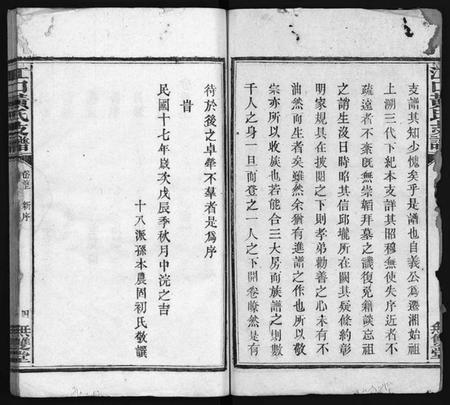 江口黃氏支譜
無雙堂
支譜其知少愧矣乎是譜也自義公為遷湘始祖
上溯三代下紀本支詳其昭穆無使失序近者不
疏遠者不紊既無崇韜拜墓之譏復免籍談忘祖
之誚生沒日時略其信邱壠所在闕其疑條約彰
明家規具在披閱之下則孝弟勸善之心未有不
油然而生者矣雖然余猶有進譜之作也所以敬
宗亦所以收族也若能合三大房而族譜之則數
千人之身一旦而登之一人之下開卷瞭然是有
待於後之卓犖不羣者是為序
旹
民國十七年歲次戊辰季秋月中浣之吉
十八派孫本農固初氏敬譔
江口黃氏支譜
卷首 新序
四
無雙堂